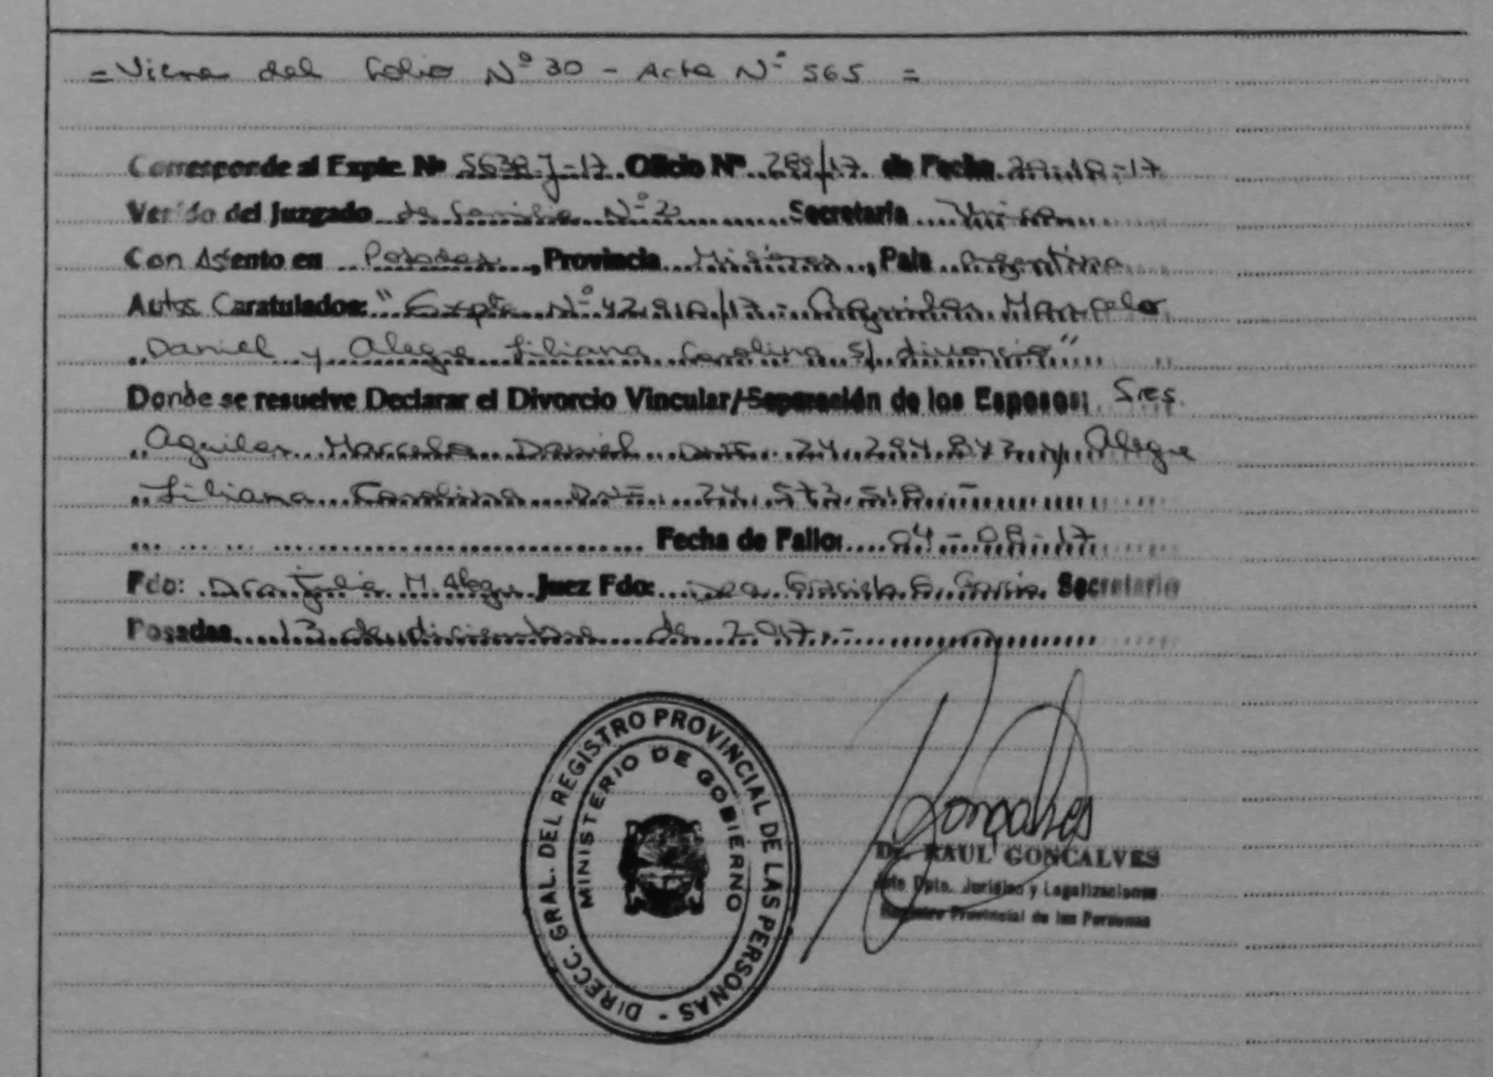 = Viene del Folio Nº 30 - Acta Nº 565 =
Corresponde al Expte. Nº 5638-J-17 Oficio Nº 289/17 de Fecha -10-17
Venido del Juzgado de Familia Nº 2 Secretaría Única
Con Asiento en Posadas, Provincia Misiones, País Argentina
Autos Caratulados: "Expte Nº 42.910/17 - Aguilar Marcelo
Daniel y Alegre Liliana Carolina s/ divorcio"
Donde se resuelve Declarar el Divorcio Vincular/Separación de los Esposos: Sres.
Aguilar Marcelo Daniel DNI. 24.294.847 y Alegre
Liliana Carolina DNI. 24.573.518 -
Fecha de Fallo: 04-08-17
Fdo: Dra Julia M. Alegre Juez Fdo: Dra. Graciela E. Garcia Secretario
Posadas 13 de diciembre de 2.017.-
DIRECC. GRAL. DEL REGISTRO PROVINCIAL DE LAS PERSONAS -
MINISTERIO DE GOBIERNO
Goncalves
Dr. RAUL GONCALVES
Jefe Dpto. Jurídico y Legalizaciones
Registro Provincial de las Personas